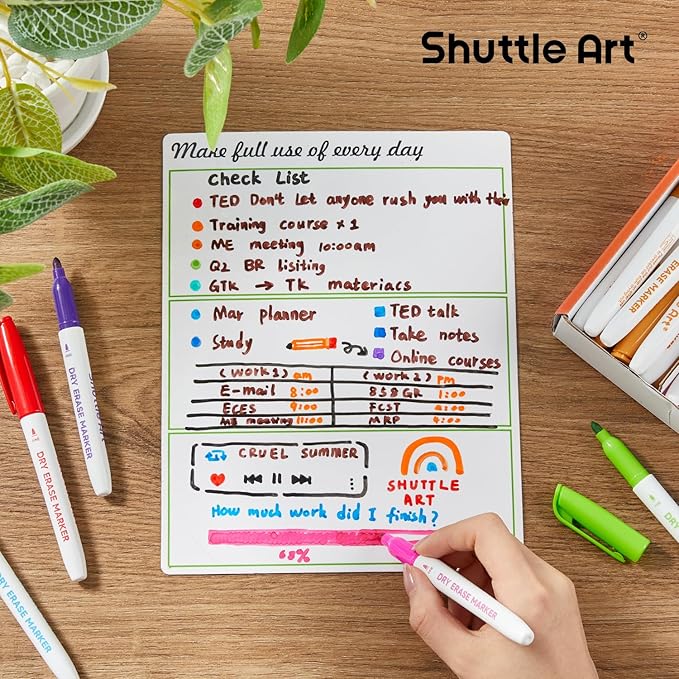 Shuttle Art®
Make full use of every day
Check List
TED Don't Let anyone rush you with their
Training course x 1
ME meeting 10:00am
Q2 BR lisiting
GTK → TK materiacs
Mar planner
Study
TED talk
Take notes
Online courses
(work1) am
E-mail 8:00
ECES 9:00
ME meeting 11:00
(work2) pm
858 GR 1:00
FCST 2:00
MRP 4:00
CRUEL SUMMER
SHUTTLE
ART
How much work did I finish?
68%
DRY ERASE MARKER
DRY ERASE MARKER
Shuttle Art
DRY ERASE MARKER
DRY ERASE MARKER
DRY ERASE MARKER
ERASE MARKER
Shuttle Art